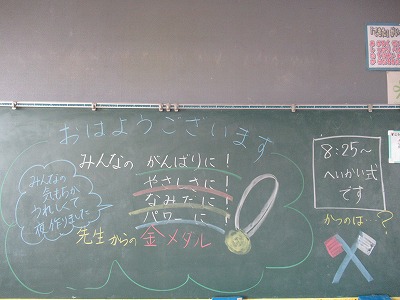 おはようございます
みんなの がんばりに!
やさしさに!
なみだに!
パワーに!
先生からの金メダル
みんなの
気もちが
うれしくて
夜作りました
8:25〜
へいかい式
です
かつのは…?